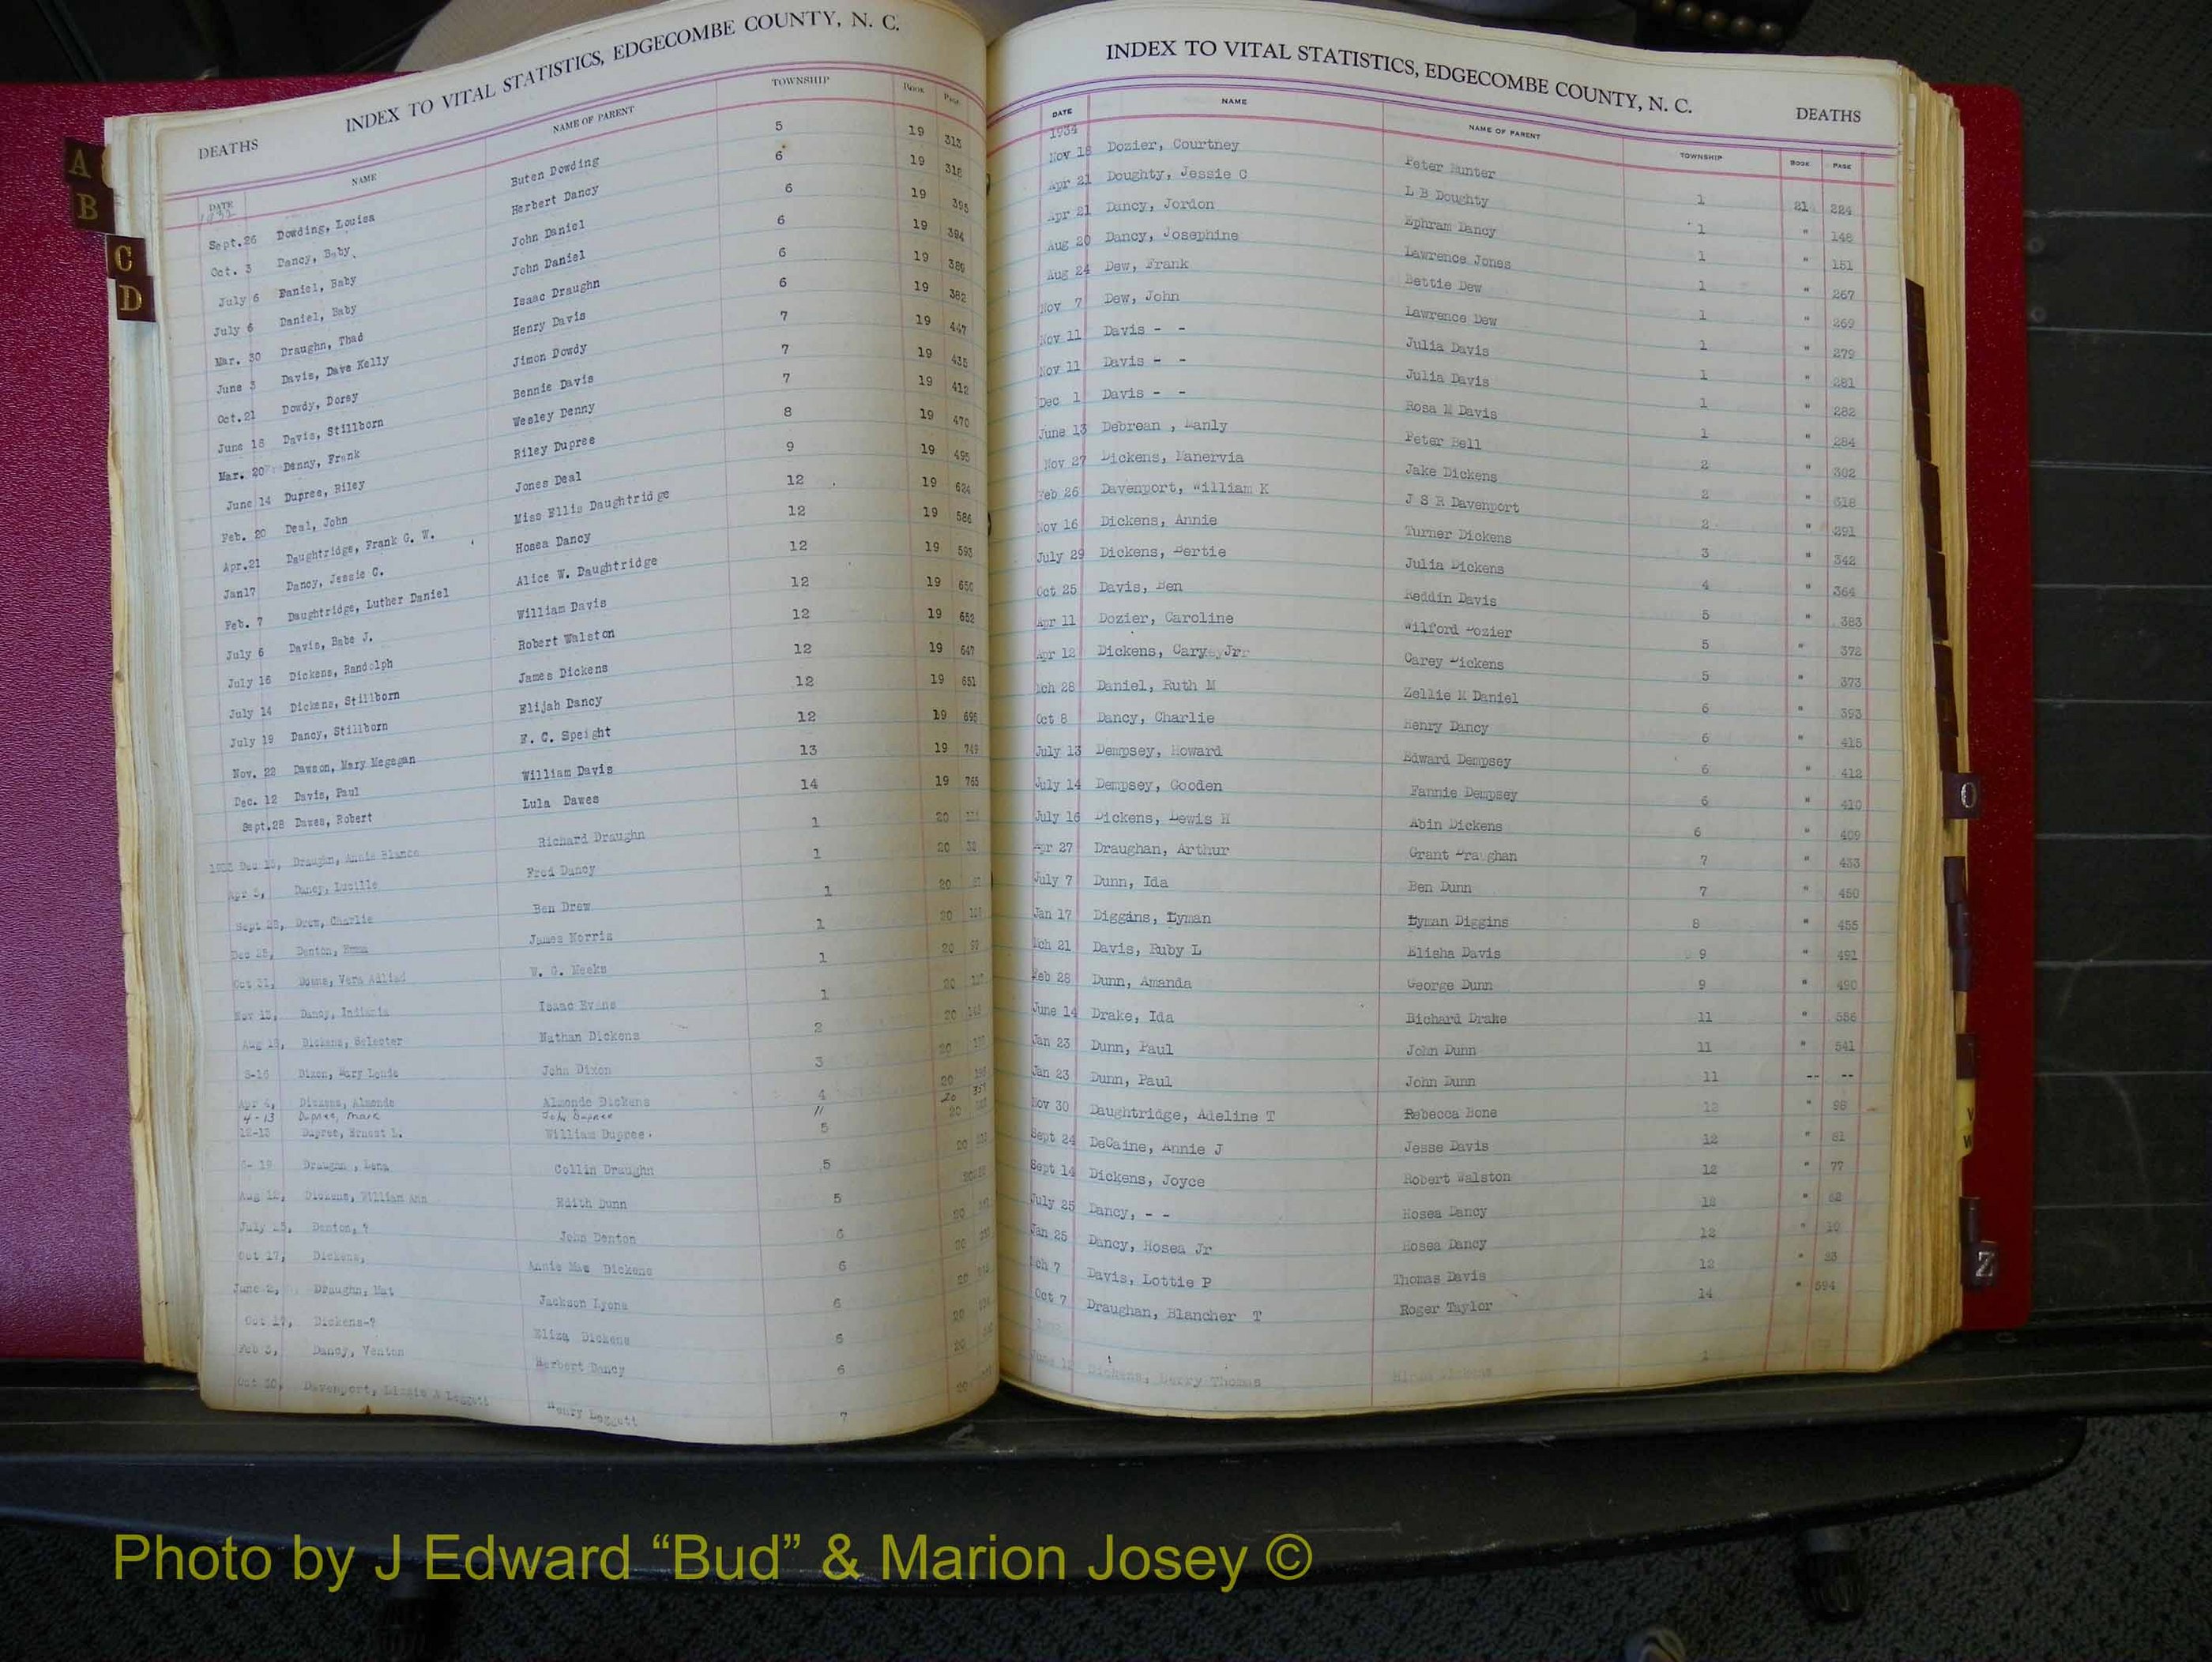 INDEX TO VITAL STATISTICS, EDGECOMBE COUNTY, N. C.
DEATHS
DATE NAME NAME OF PARENT TOWNSHIP BOOK PAGE
1932
Sept.26 Dowding, Louisa Buten Dowding 5 19 313
Oct. 3 Dancy, Baby Herbert Dancy 6 19 318
July 6 Daniel, Baby John Daniel 6 19 395
July 6 Daniel, Baby John Daniel 6 19 394
Mar. 30 Draughn, Thad Isaac Draughn 6 19 389
June 3 Davis, Dave Kelly Henry Davis 6 19 382
Oct.21 Dowdy, Dorsy Jimon Dowdy 7 19 447
June 18 Davis, Stillborn Bennie Davis 7 19 435
Mar. 20 Denny, Frank Wesley Denny 7 19 412
June 14 Dupree, Riley Riley Dupree 8 19 470
Feb. 20 Deal, John Jones Deal 9 19 495
Apr.21 Daughtridge, Frank G. W. Miss Ellis Daughtridge 12 19 624
Jan17 Dancy, Jessie C. Hosea Dancy 12 19 586
Feb. 7 Daughtridge, Luther Daniel Alice W. Daughtridge 12 19 593
July 6 Davis, Babe J. William Davis 12 19 650
July 16 Dickens, Randolph Robert Walston 12 19 652
July 14 Dickens, Stillborn James Dickens 12 19 647
July 19 Dancy, Stillborn Elijah Dancy 12 19 651
Nov. 22 Dawson, Mary Megegan F. C. Speight 12 19 698
Dec. 12 Davis, Paul William Davis 13 19 749
Sept.28 Dawes, Robert Lula Dawes 14 19 765
Draughn, Annie Blance Richard Draughn 1 20
Apr 5, Dancy, Lucille Fred Dancy 1 20
Drew, Charlie Ben Drew 1 20
Dec 25, Denton, Emma James Norris 1 20
Oct 31, Downs, Vera W. G. Meeks 1 20
Nov 13, Dancy, Indiania Isaac Evans 1 20
Dickens, Selecter Nathan Dickens 2 20
Dixon, Mary John Dixon 3 20
Dickens, Almondo Almondo Dickens 4 20
4-13 Dupree, Mark John Dupree 11 20 357
Dupree, Ernest L. William Dupree. 5 20
Draughn, Lena Collin Draughn 5
Aug 12, Dickens, William Ann Edith Dunn 5 20
Denton, ? John Denton 6 20
Oct 17, Dickens, Annie Mae Dickens 6 20
Draughn, Mat Jackson Lyons 6 20
Oct 17, Dickens-? Eliza Dickens 6 20
Feb 3, Dancy, Venton Herbert Dancy 6 20
Davenport, Lizzie Leggett Henry Leggett 7
INDEX TO VITAL STATISTICS, EDGECOMBE COUNTY, N. C.
DEATHS
DATE NAME NAME OF PARENT TOWNSHIP BOOK PAGE
1934
Nov 18 Dozier, Courtney Peter Hunter 1 21 224
Apr 21 Doughty, Jessie C L B Doughty 1 " 148
Apr 21 Dancy, Jordon Ephram Dancy 1 " 151
Aug 20 Dancy, Josephine Lawrence Jones 1 " 267
Aug 24 Dew, Frank Bettie Dew 1 " 269
Nov 7 Dew, John Lawrence Dew 1 " 279
Nov 11 Davis - - Julia Davis 1 " 281
Nov 11 Davis - - Julia Davis 1 " 282
Dec 1 Davis - - Rosa M Davis 1 " 284
June 13 Debrean , Manly Peter Bell 2 " 302
Nov 27 Dickens, Manervia Jake Dickens 2 " 318
Feb 26 Davenport, William K J S R Davenport 2 " 291
Nov 16 Dickens, Annie Turner Dickens 3 " 342
July 29 Dickens, Bertie Julia Dickens 4 " 364
Oct 25 Davis, Ben Reddin Davis 5 " 383
Apr 11 Dozier, Caroline Wilford Dozier 5 " 372
Apr 12 Dickens, Carey Jr Carey Dickens 5 " 373
Mch 28 Daniel, Ruth M Zellie M Daniel 6 " 393
Oct 8 Dancy, Charlie Henry Dancy 6 " 415
July 13 Dempsey, Howard Edward Dempsey 6 " 412
July 14 Dempsey, Gooden Fannie Dempsey 6 " 410
July 16 Dickens, Lewis H Abin Dickens 6 " 409
Apr 27 Draughan, Arthur Grant Draughan 7 " 433
July 7 Dunn, Ida Ben Dunn 7 " 450
Jan 17 Diggins, Lyman Lyman Diggins 8 " 455
Mch 21 Davis, Ruby L Elisha Davis 9 " 491
Feb 28 Dunn, Amanda George Dunn 9 " 490
June 14 Drake, Ida Richard Drake 11 " 556
Jan 23 Dunn, Paul John Dunn 11 " 541
Jan 23 Dunn, Paul John Dunn 11 -- --
Nov 30 Daughtridge, Adeline T Rebecca Bone 12 "
Sept 24 DeCaine, Annie J Jesse Davis 12 " 81
Sept 14 Dickens, Joyce Robert Walston 12 " 77
July 25 Dancy, - - Hosea Dancy 12 " 62
Jan 25 Dancy, Hosea Jr Hosea Dancy 12 " 10
Mch 7 Davis, Lottie P Thomas Davis 12 " 23
Oct 7 Draughan, Blancher T Roger Taylor 14 " 594
Dickens, Berry Thomas 1
A
B
C
D
O
Z
Photo by J Edward “Bud” & Marion Josey ©